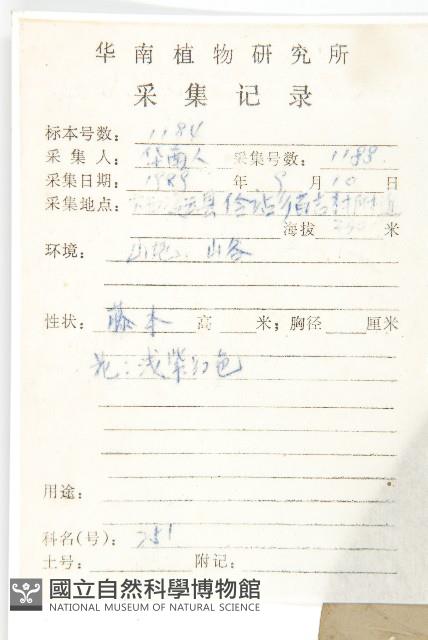 华南植物研究所
采集记录
标本号数: 1184
采集人: 华南人 采集号数: 1188
采集日期: 1989 年 9 月 10 日
采集地点: 县
海拔 米
环境: 山地、山谷
性状: 藤本 高 米; 胸径 厘米
花:浅紫红色
用途:
科名(号): 251
土号: 附记:
國立自然科學博物館
NATIONAL MUSEUM OF NATURAL SCIENCE